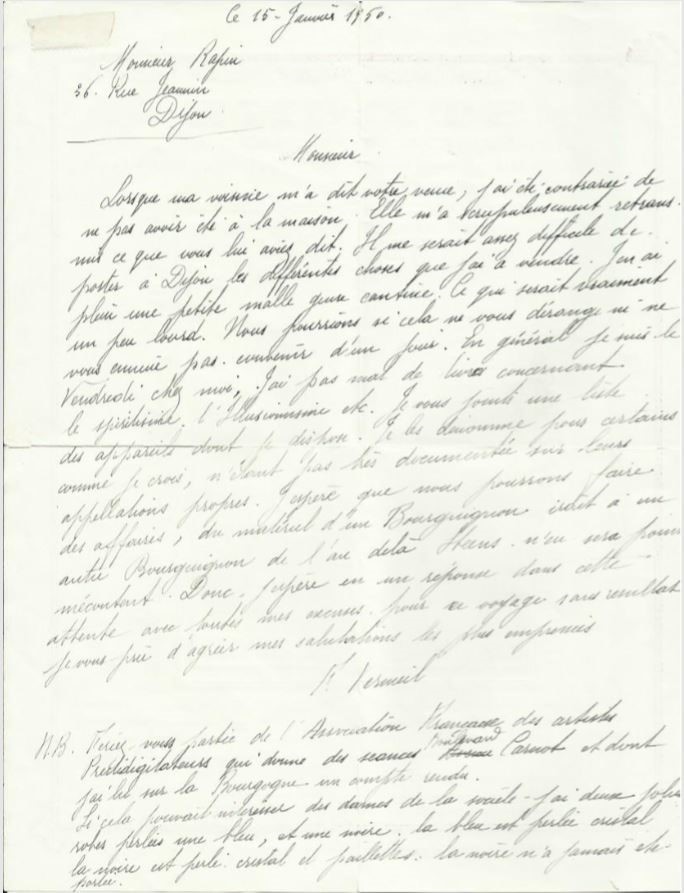 Le 15 - Janvier 1950.
Monsieur Rapin
36. Rue Jeannin
Dijon
Monsieur
Lorsque ma voisine m'a dit votre venue, j'ai été contrariée de
ne pas avoir été à la maison. Elle m'a scrupuleusement retrans-
mis ce que vous lui aviez dit. Il me serait assez difficile de
porter à Dijon les différentes choses que j'ai à vendre. J'en ai
plein une petite malle genre cantine. Ce qui serait vraiment
un peu lourd. Nous pourrions si cela ne vous dérange ni ne
vous ennuie pas. convenir d'un jour. En général je suis le
Vendredi chez moi, J'ai pas mal de livres concernant
le spiritisme, l'Illusionnisme etc. Je vous joints une liste
des appareils dont je dispose. Je les dénomme pour certains
comme je crois, n'étant pas très documentée sur leurs
appellations propres. J'espère que nous pourrons faire
des affaires, du matériel d'un Bourguignon irait à un
autre Bourguignon de l'au delà Steens. n'en sera point
mécontent. Donc. J'espère en une réponse dans cette
attente avec toutes mes excuses pour ce voyage sans resultat
je vous prie d'agréer mes salutations les plus empressées
Vermeil
N.B. Feriez vous partie de l'Association Française des artistes
Prestidigitateurs qui donne des seances Boulevard Carnot et dont
j'ai lu sur la Bourgogne un compte rendu.
Si cela pouvait intéresser des dames de la société - j'ai deux jolies
robes perlées une bleu, et une noire. la bleu est perlée cristal
la noire est perlé cristal et paillettes. la noire n'a jamais été
portée.